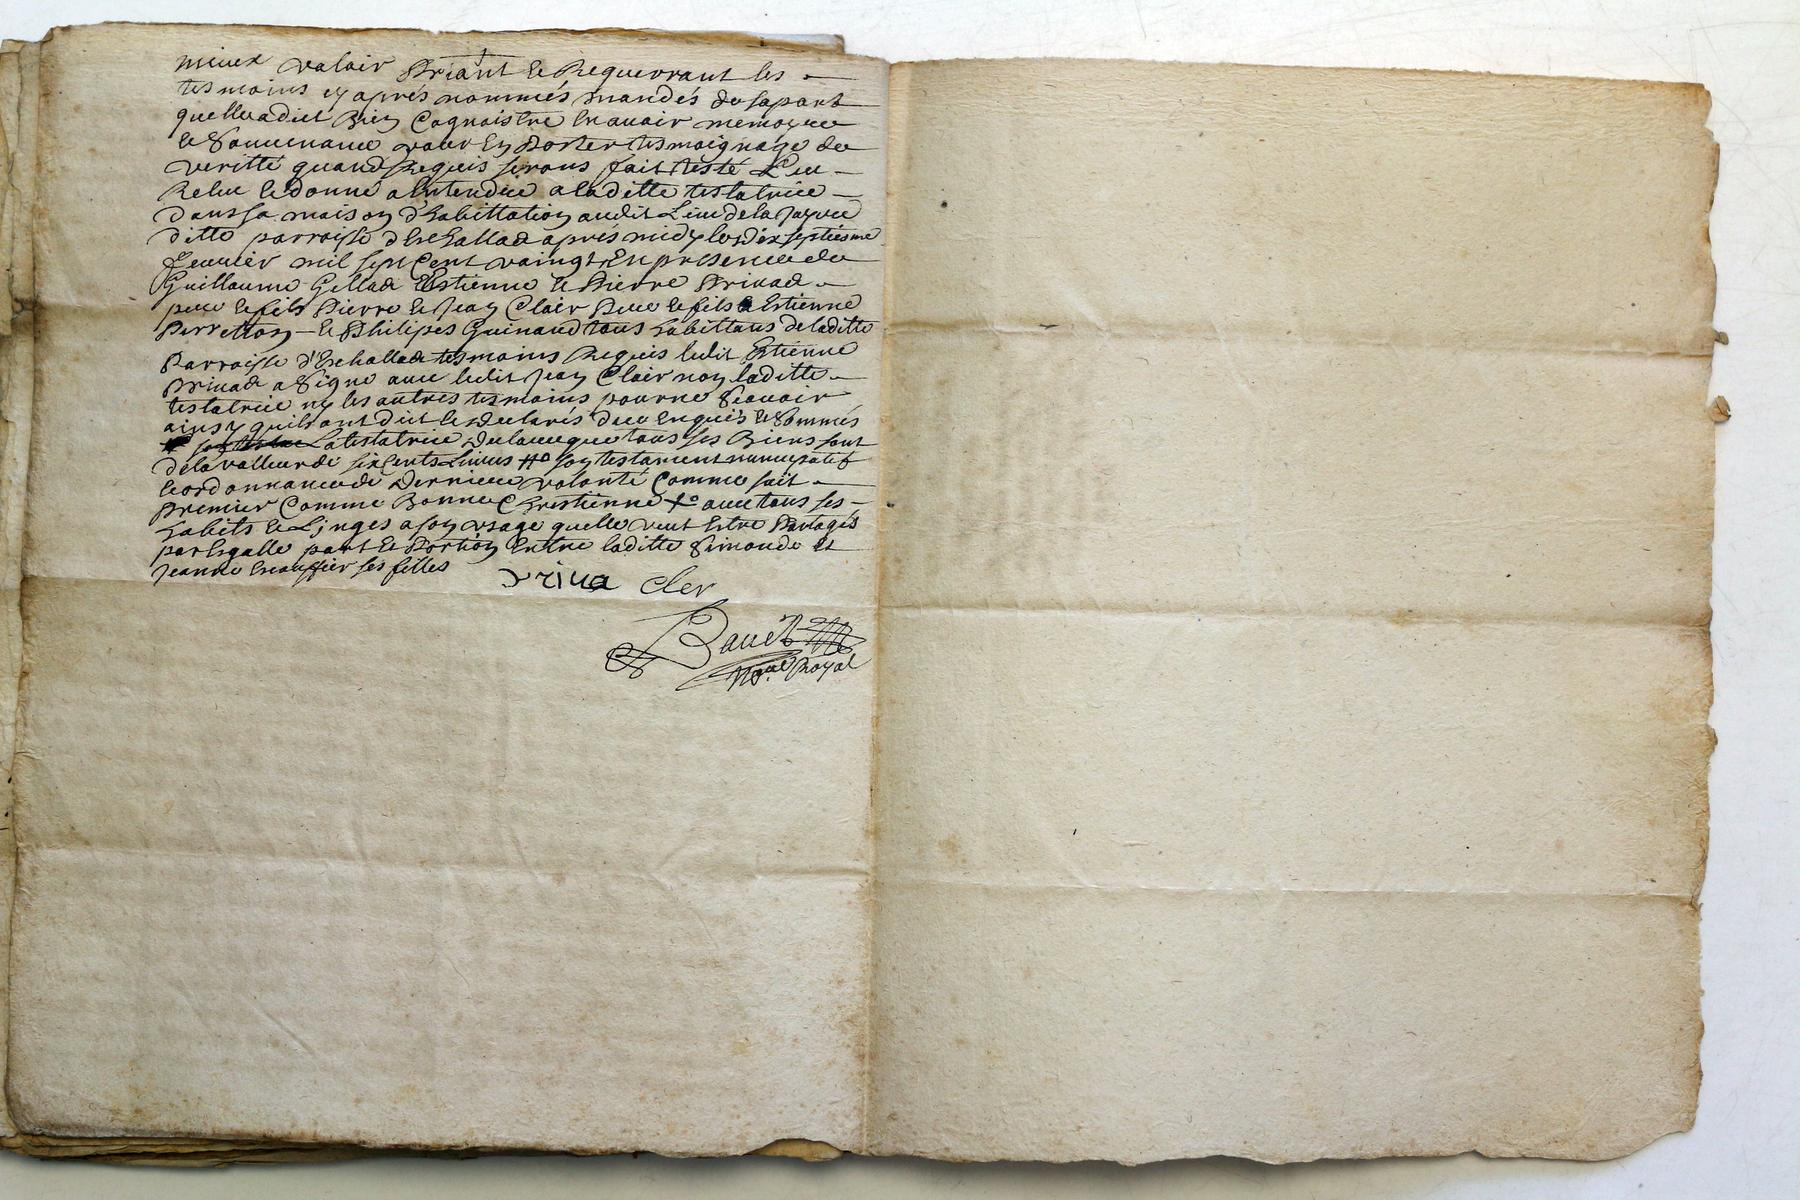 mieux valoir Priant et Requerrant les
tesmoins cy aprés nommés mandés de sa part
quelle a dict Bien Cognoistre En avoir memoyre
et Souvenance pour En Porter tesmoignage de
veritté quand Requis seronts fait testé Leu
Releu et donné a Entendre a laditte testatrice
Dans sa maison d'habittation audit Lieu de la
ditte parroisse d'Eschallas aprés midy le dix septiesme
fevrier mil sept Cent vaingt En presence de
Guillaume Gellas Estienne et Pierre Privas
pere et fils Pierre et Jean Clair Pere et fils Estienne
Perretton et Philipes Guinand tous habittans de laditte
Parroisse d'Eschallas tesmoins Requis ledit Estienne
Privas a Signé avec ledit Jean Clair non laditte
testatrice ny les autres tesmoins pour ne Sçavoir
ainsy quils ont dict et declarés de ce Enquis et Sommés
La testatrice declare que tous ses Biens sont
de la valleur de six Cents Livres # son testament nuncupatif
et ordonnance de Derniere volonté Comme sait
Premier Comme Bonne Chrestienne + avec tous ses
habits et Linges a son usage quelle veut Estre Partagés
par Esgalle part et Portion Entre laditte Simonde et
Jeanne ses filles
Priva Cler
Royal